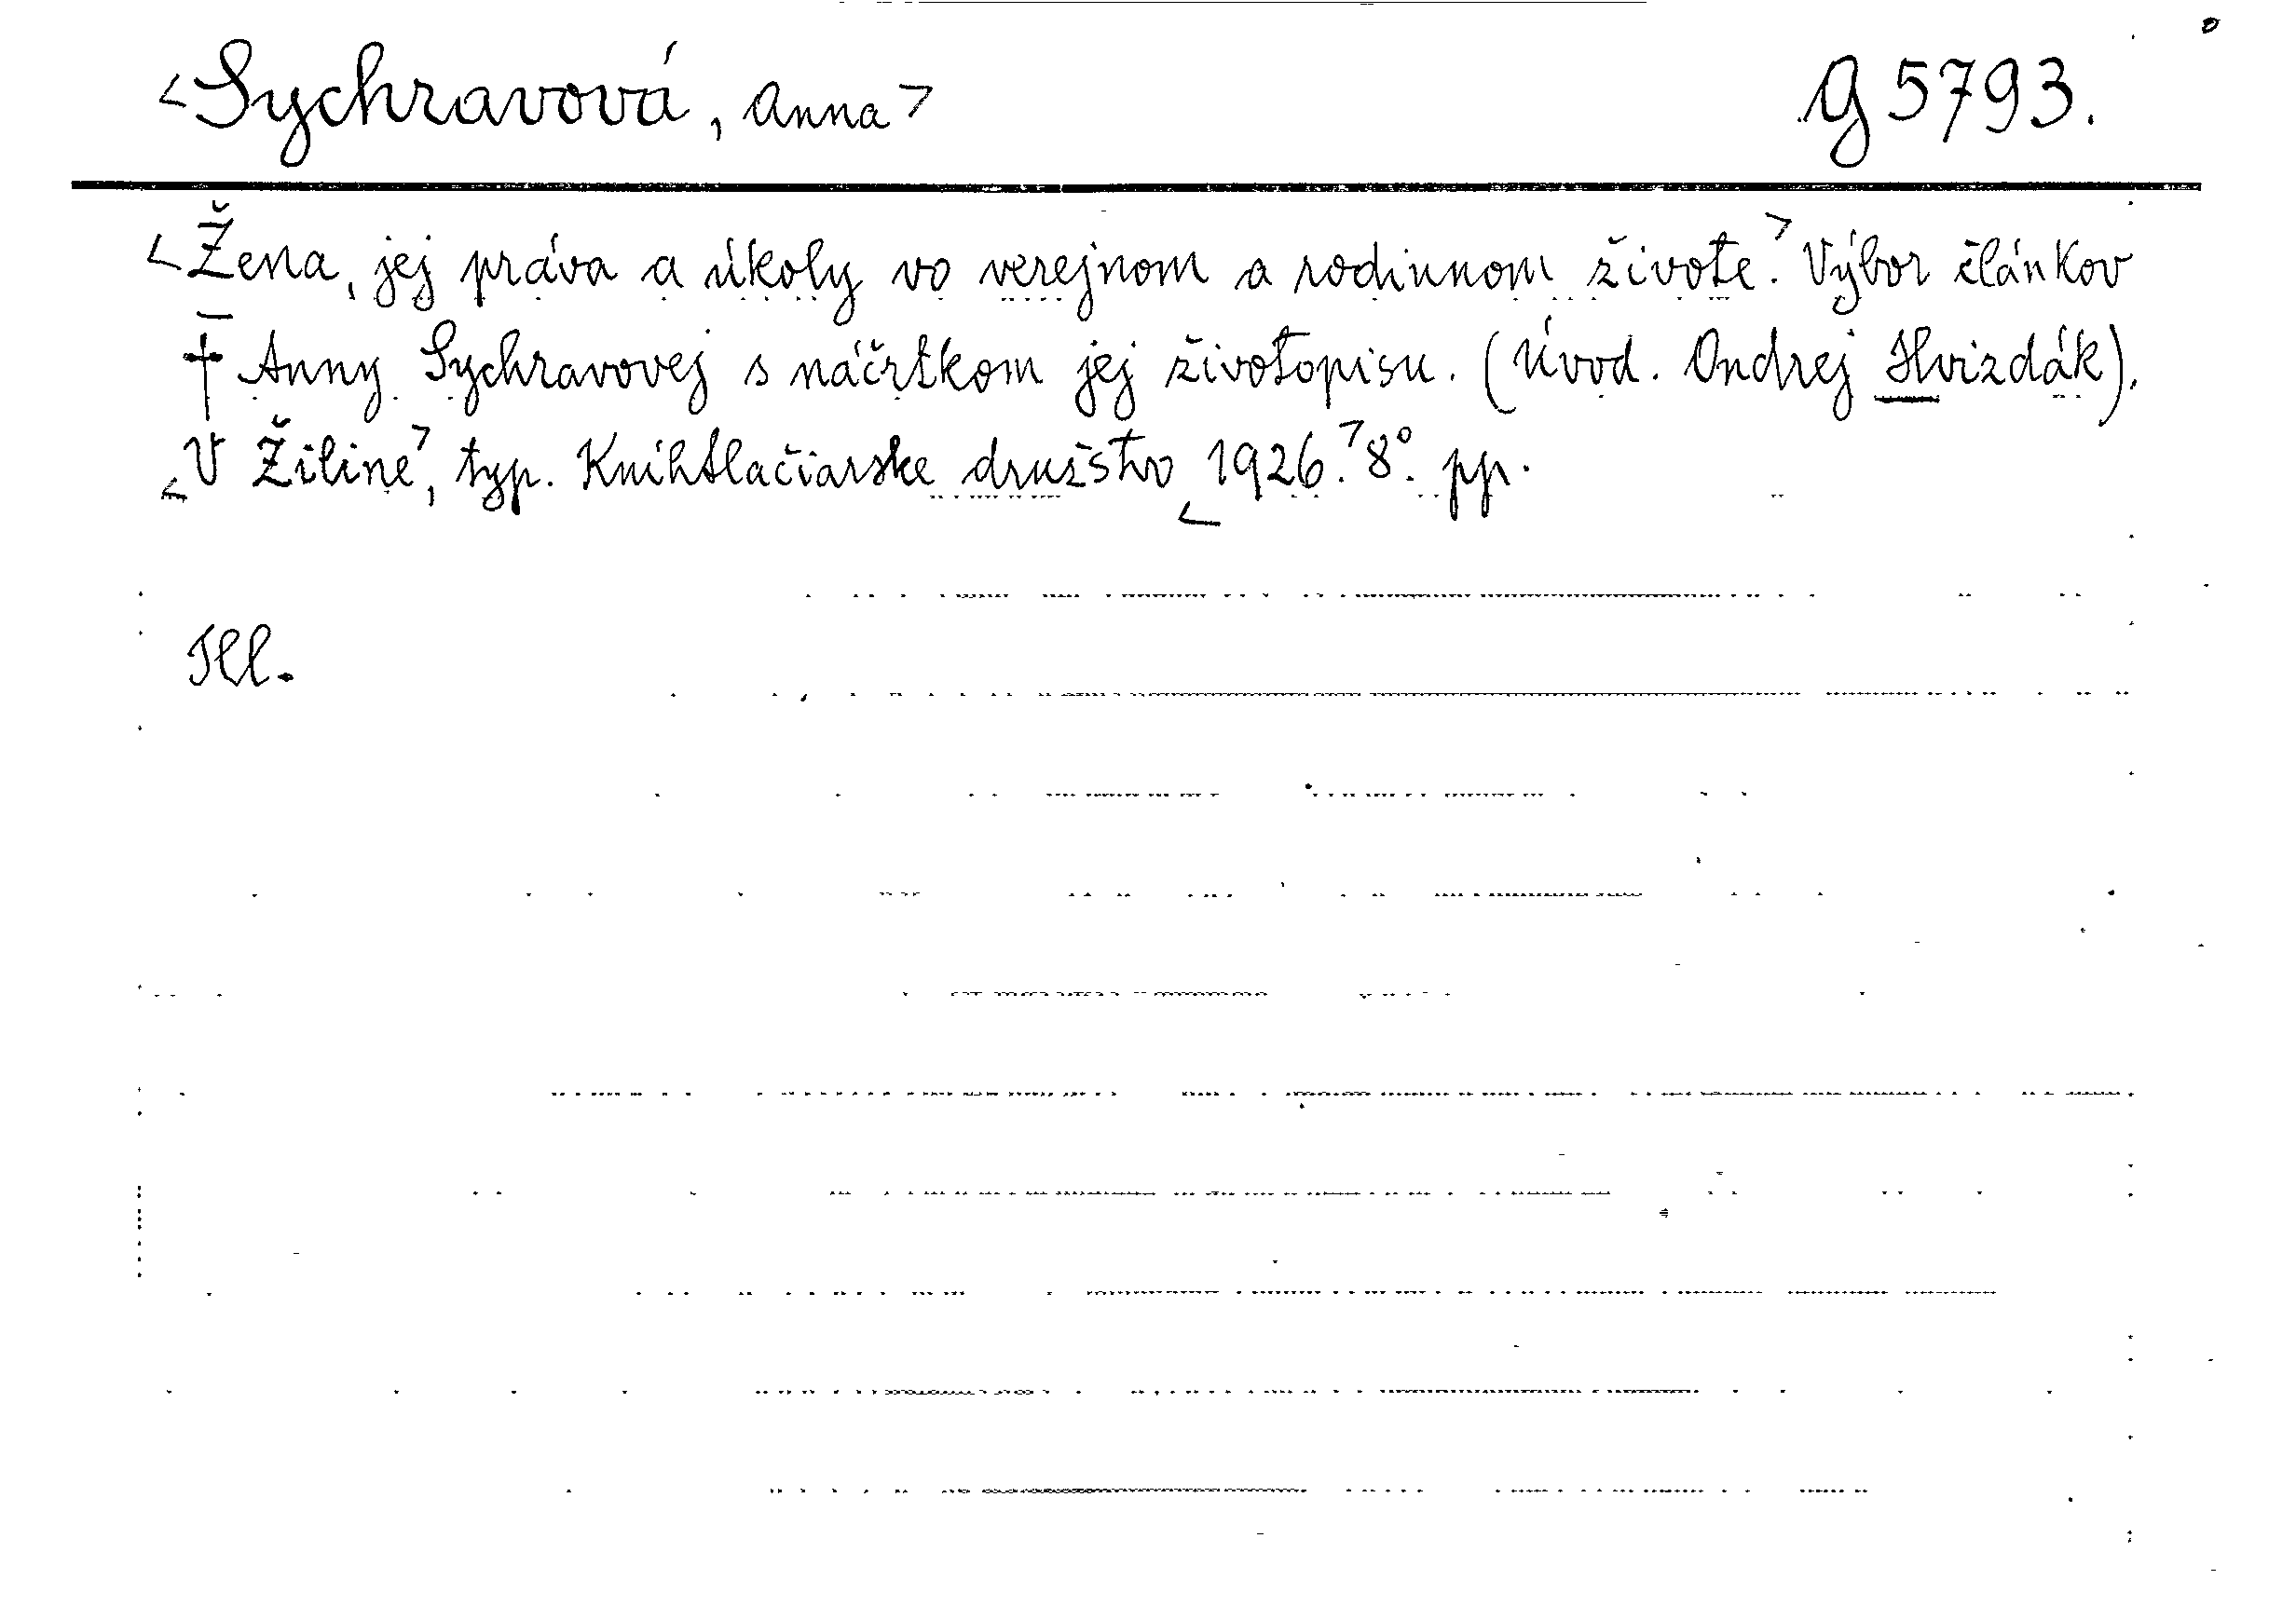 <Sychravová, Anna> G 5793.
<Žena, jej práva a úkoly vo verejnom a rodinnom živote.> Výbor článkov
† Anny Sychravovej s náčrtkom jej životopisu. (Úvod. Ondrej Hvizdák).
<V Žiline>, typ. Knihtlačiarske družstvo <1926.> 8°. pp.
Ill.